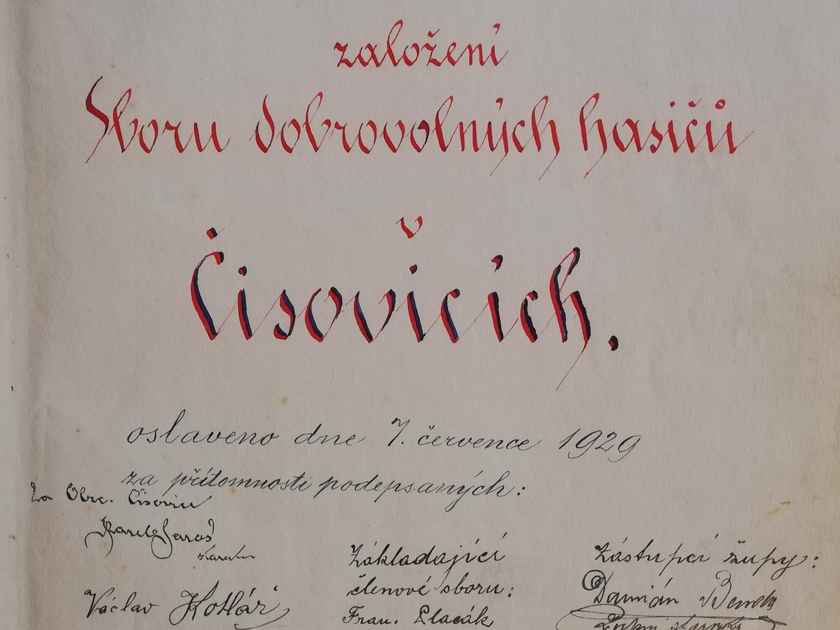 založení
Sboru dobrovolných hasičů
v
Čisovicích.
oslaveno dne 7. července 1929
za přítomnosti podepsaných:
Za Obec. Čisovice
Zakládající
členové sboru:
Fran. Placák
Zástupci župy:
Damián
Václav Kotlář